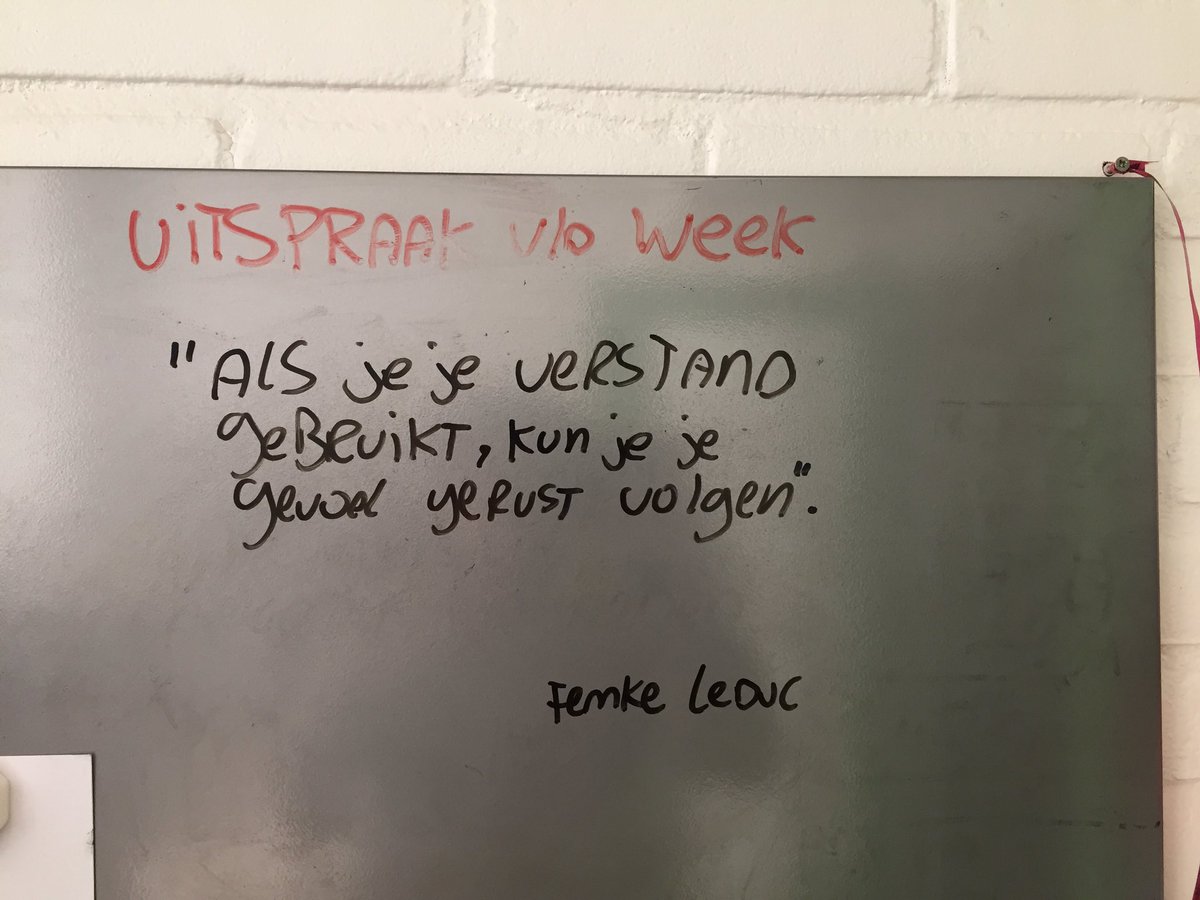 UiTSPRAAK v/o Week
"Als je je verstand
gebruikt, kun je je
gevoel gerust volgen".
Femke Leduc